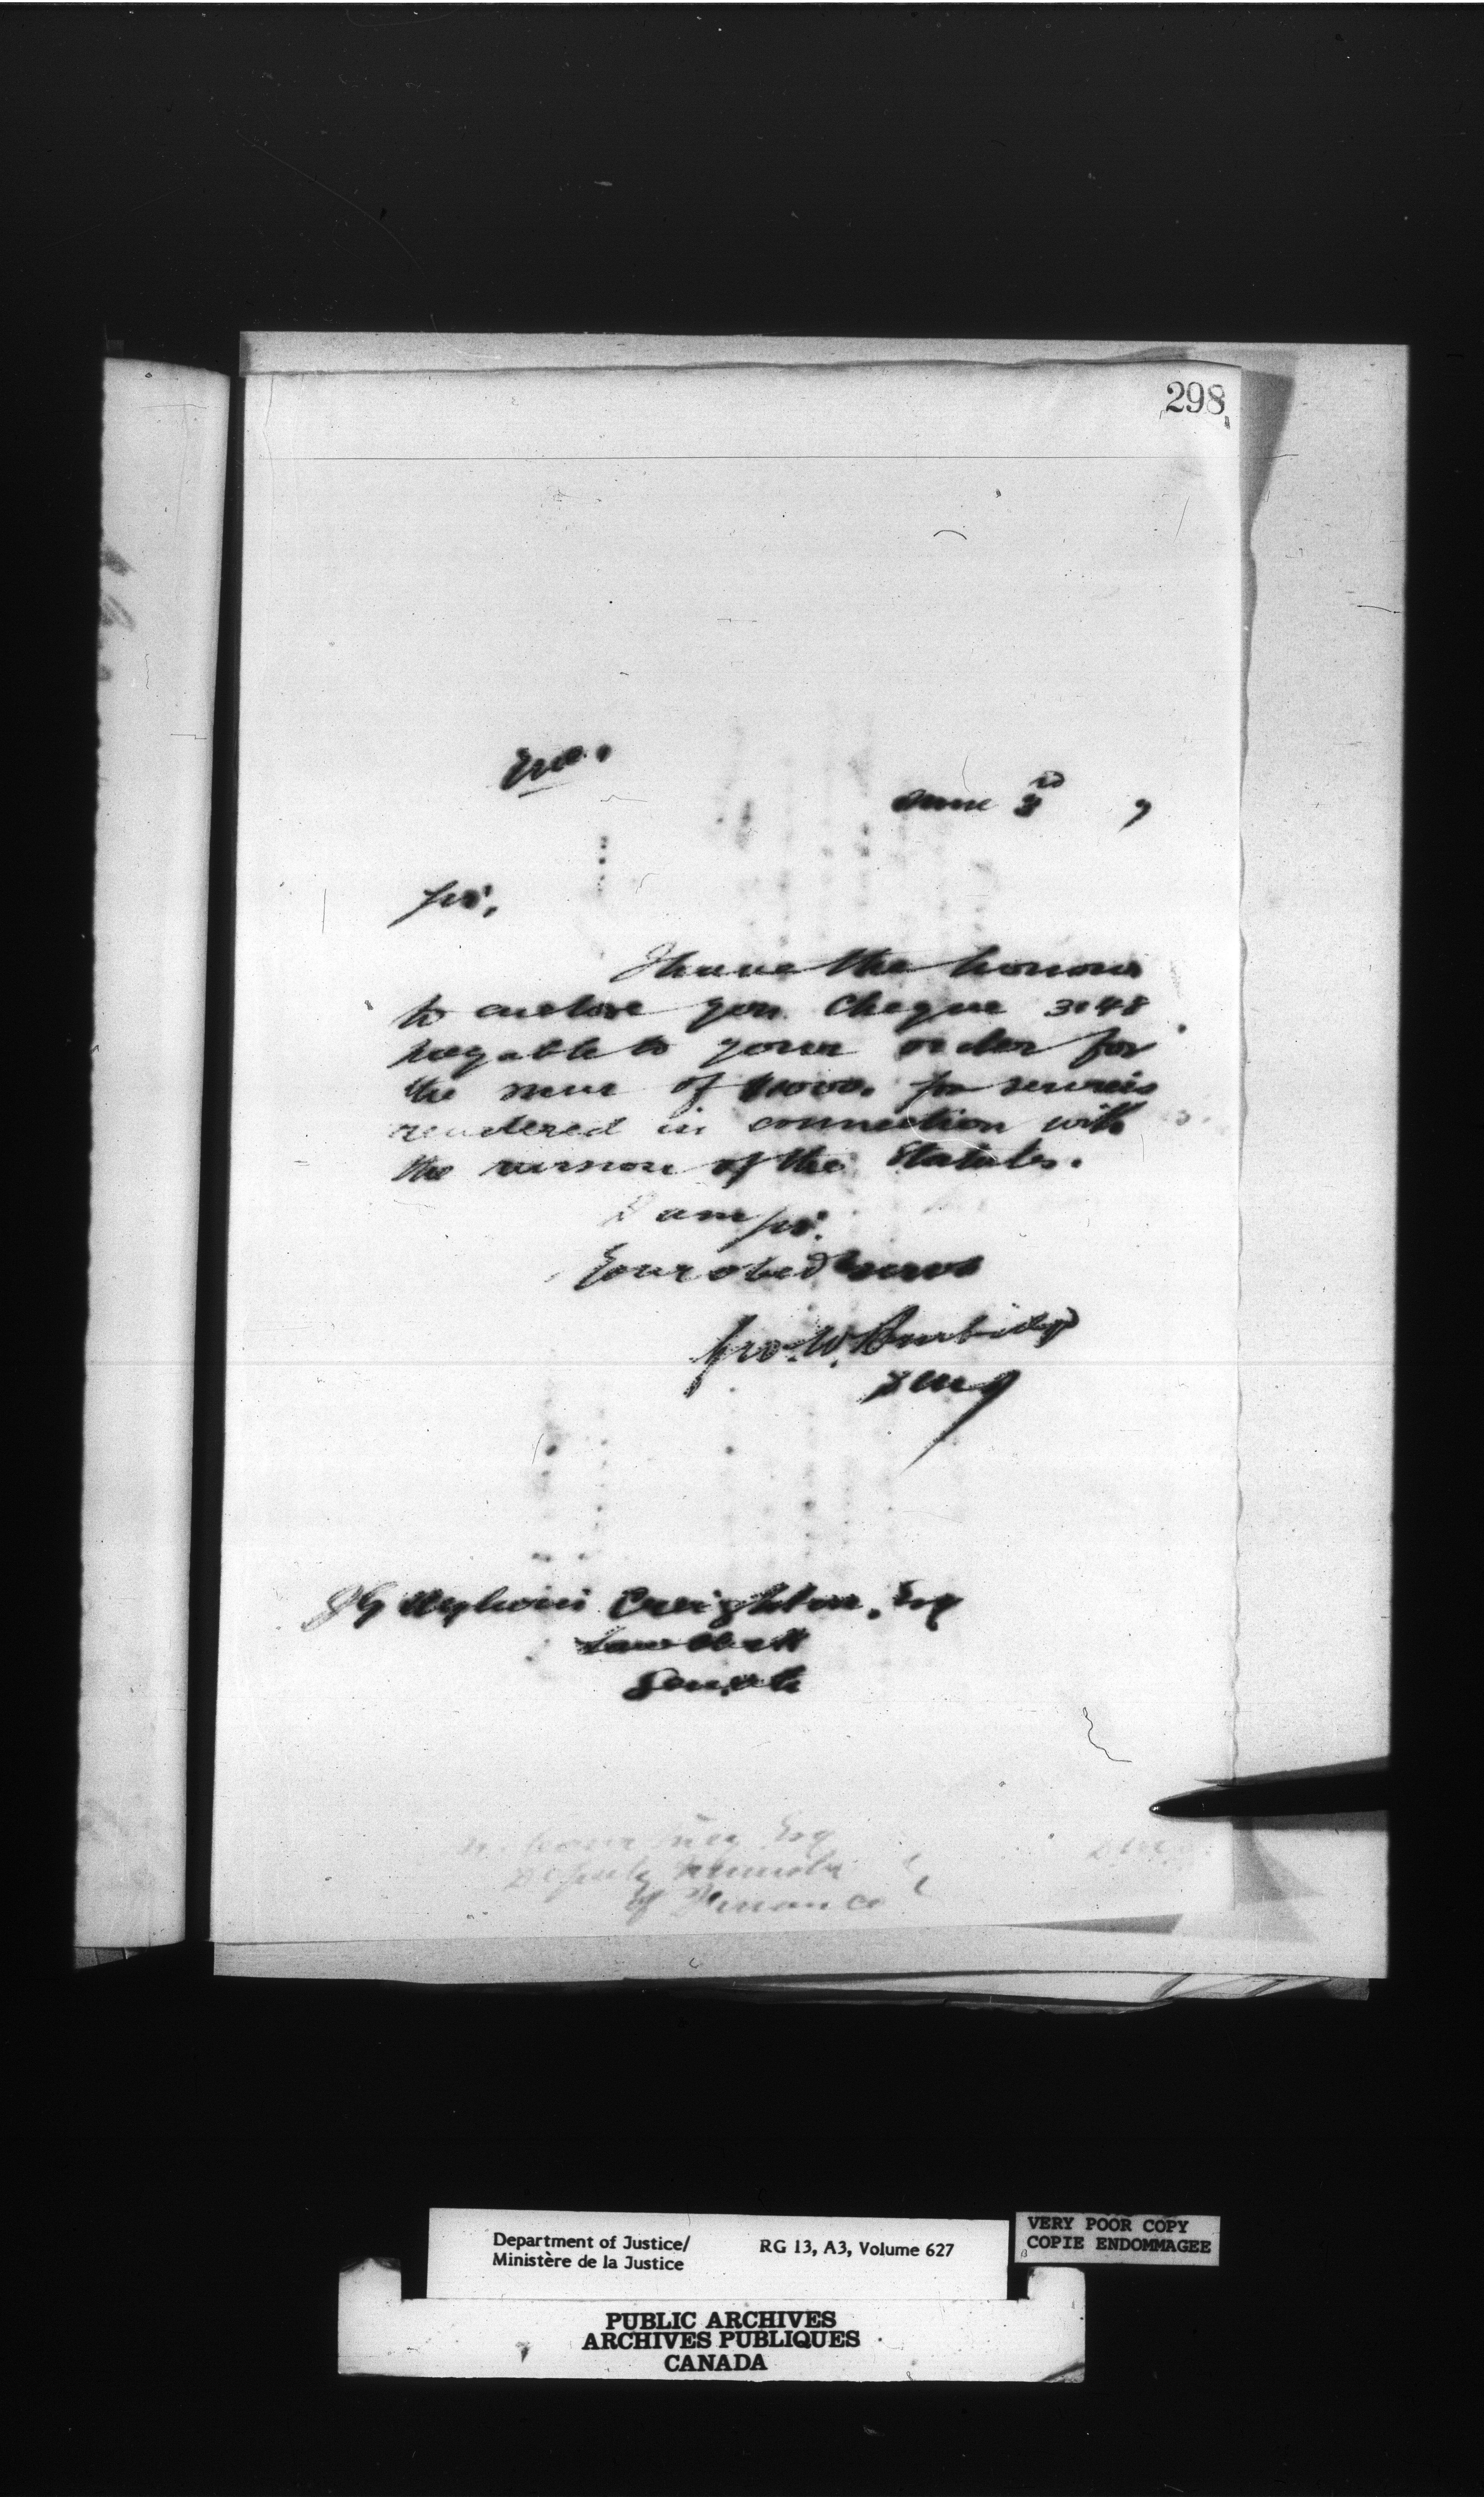 298
Enc.
June 3rd 7
Sir,
I have the honour
to enclose you Cheque 3148
payable to your order for
the sum of $1000. for services
rendered in connection with
the revision of the Statutes.
I am Sir.
Your obedt servt
Geo. W. Burbidge
DMJ
J G Aylwin Creighton, Esq
Law Clerk
Senate
Esq
Deputy Minister
of Finance
Department of Justice/
Ministère de la Justice
RG 13, A3, Volume 627
VERY POOR COPY
COPIE ENDOMMAGEE
PUBLIC ARCHIVES
ARCHIVES PUBLIQUES
CANADA